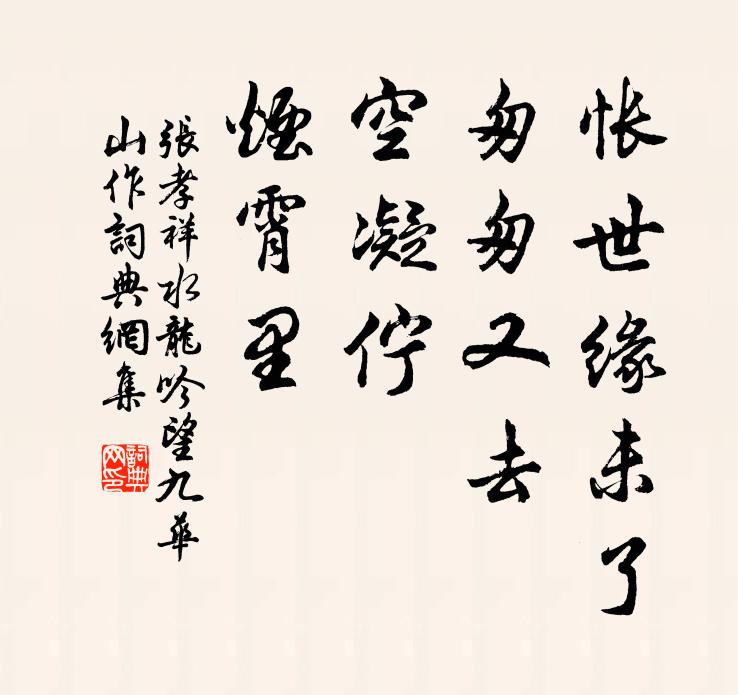 怅世缘未了
匆匆又去
空凝佇
煙霄里
張孝祥水龍吟望九華
山作詞典網集
詞典网印